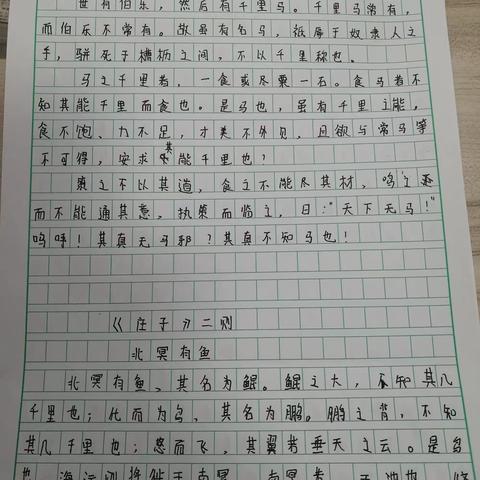 世有伯乐，然后有千里马。千里马常有，
而伯乐不常有。故虽有名马，祇辱于奴隶人之
手，骈死于槽枥之间，不以千里称也。
马之千里者，一食或尽粟一石。食马者不
知其能千里而食也。是马也，虽有千里之能，
食不饱，力不足，才美不外见，且欲与常马等
不可得，安求其能千里也？
策之不以其道，食之不能尽其材，鸣之
而不能通其意，执策而临之，曰：“天下无马！”
呜呼！其真无马邪？其真不知马也！
《庄子》二则
北冥有鱼
北冥有鱼，其名为鲲。鲲之大，不知其几
千里也；化而为鸟，其名为鹏。鹏之背，不知
其几千里也；怒而飞，其翼若垂天之云。是鸟
也，海运则将徙于南冥。南冥者，天池也。